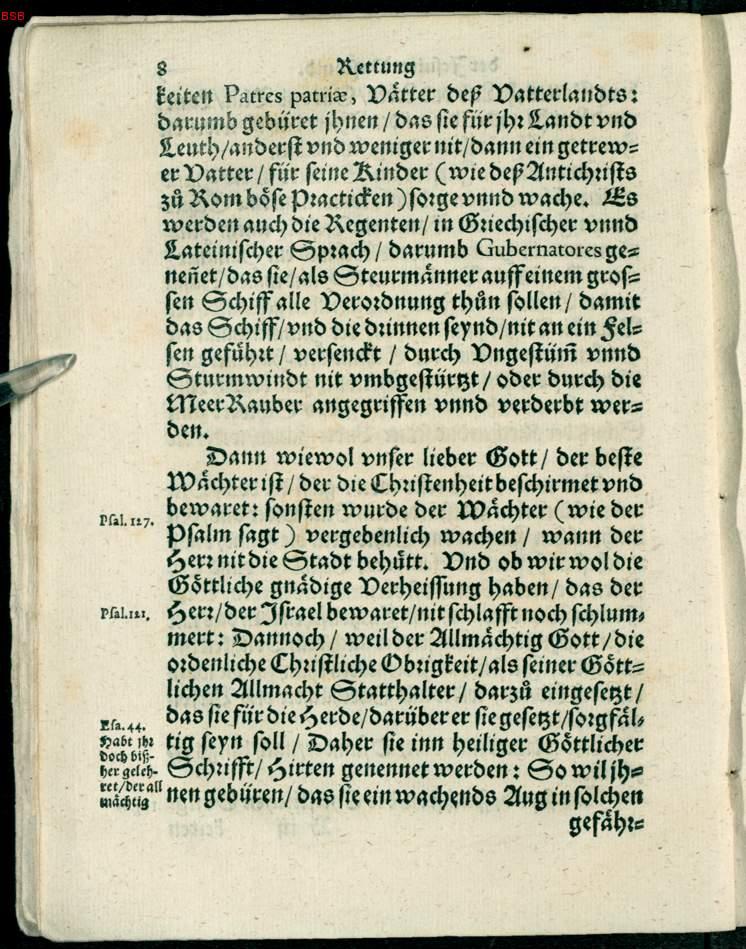 BSB
8 Rettung
keiten Patres patriæ, Vätter deß Vatterlandts:
darumb gebüret jhnen / das sie für jhr Landt vnd
Leuth/anderst vnd weniger nit/dann ein getrew-
er Vatter / für seine Kinder (wie deß Antichrists
zů Rom böse Practicken) sorge vnnd wache. Es
werden auch die Regenten/ in Griechischer vnnd
Lateinischer Sprach / darumb Gubernatores ge-
neñet/das sie/als Steurmänner auff einem gros-
sen Schiff alle Verordnung thůn sollen / damit
das Schiff/vnd die drinnen seynd/nit an ein Fel-
sen geführt / versenckt / durch Vngestüm̃ vnnd
Sturmwindt nit vmbgestürtzt / oder durch die
MeerRauber angegriffen vnnd verderbt wer-
den.
Dann wiewol vnser lieber Gott / der beste
Wächter ist / der die Christenheit beschirmet vnd
bewaret: sonsten wurde der Wächter (wie der
Psal. 127.
Psalm sagt) vergebenlich wachen / wann der
Herr nit die Stadt behütt. Vnd ob wir wol die
Göttliche gnädige Verheissung haben / das der
Psal. 121.
Herr/der Israel bewaret/nit schlafft noch schlum-
mert: Dannoch / weil der Allmächtig Gott / die
ordenliche Christliche Obrigkeit/als seiner Gött-
lichen Allmacht Statthalter / darzů eingesetzt /
das sie für die Herde/darüber er sie gesetzt/sorgfäl-
tig seyn soll / Daher sie inn heiliger Göttlicher
Schrifft/ Hirten genennet werden: So wil jh-
nen gebüren/ das sie ein wachends Aug in solchen
Esa. 44.
Habt jhr
doch biß-
her geleh-
ret/der all
mächtig
gefähr-